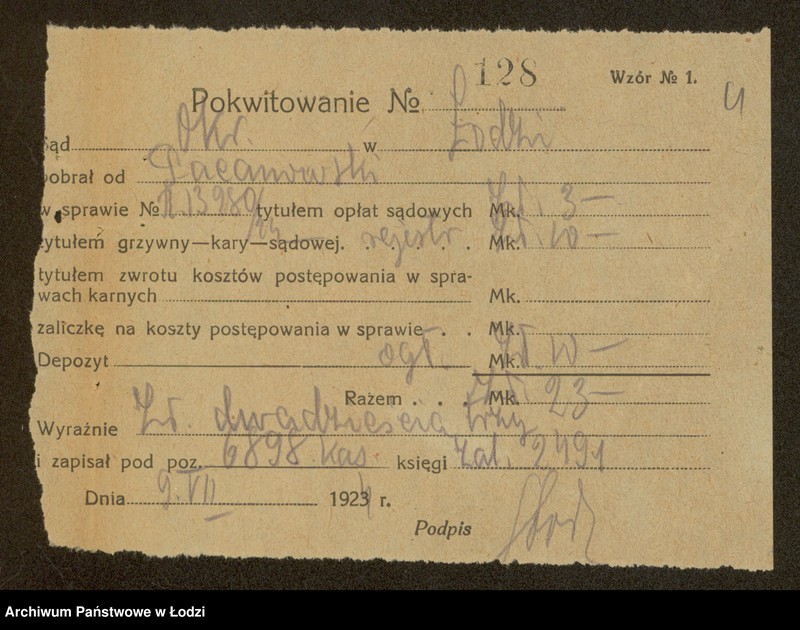 128
Wzór № 1.
Pokwitowanie №
4
Sąd Okr. w Łodzi
pobrał od Pacanowski
w sprawie № R 13980/24 tytułem opłat sądowych Mk. Zł. 3 —
tytułem grzywny—kary—sądowej. . . . . rejestr Mk. Zł. 10 —
tytułem zwrotu kosztów postępowania w spra-
wach karnych Mk.
zaliczkę na koszty postępowania w sprawie . . Mk.
Depozyt ogł. Mk. Zł. 10 —
Razem . . . Mk. Zł. 23 —
Wyraźnie Zł. dwadzieścia trzy
i zapisał pod poz. 6898 kas księgi zal. 2491
Dnia 9. VII 1924 r.
Podpis
Archiwum Państwowe w Łodzi